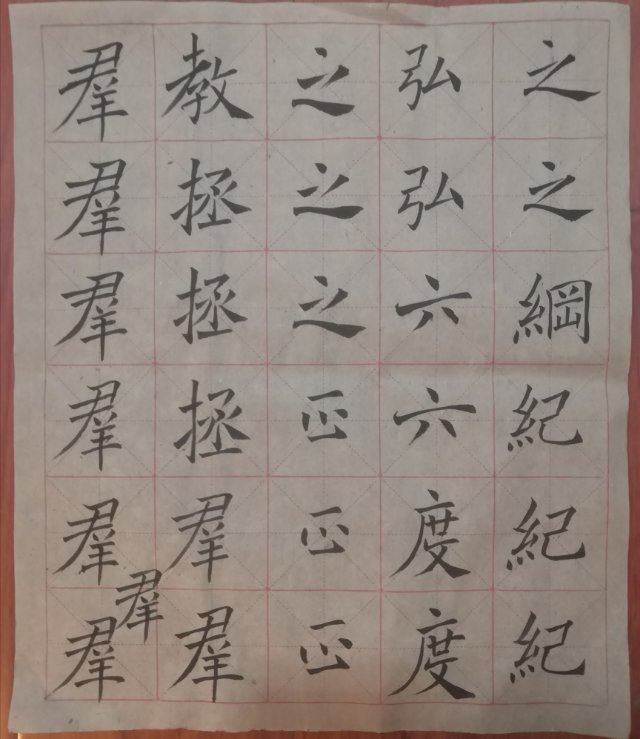 之之綱紀紀紀
弘弘六六度度
之之之正正正
教拯拯拯羣羣
羣羣羣羣羣羣
羣